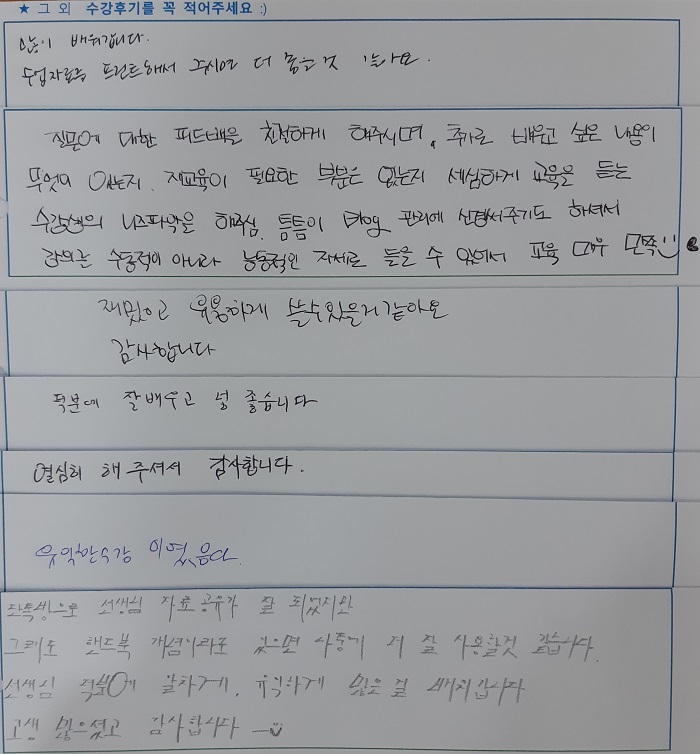 ★ 그 외 수강후기를 꼭 적어주세요 :)
많이 배워갑니다.
수업자료를 프린트해서 주시면 더 좋을것 같아요.
질문에 대한 피드백을 친절하게 해주시며, 추가로 배우고 싶은 내용이
무엇이 있는지, 재교육이 필요한 부분은 없는지 세심하게 교육을 듣는
수강생의 니즈파악을 해주심. 틈틈이 Blog 관리에 신경써주기도 하셔서
강의는 수동적이 아니라 능동적인 자세로 들을 수 있어서 교육 매우 만족
재밌고 유용하게 쓸수있을거같아요
감사합니다
덕분에 잘배우고 넘 좋습니다
열심히 해 주셔서 감사합니다.
유익한수강 이였음다.
단톡방으로 선생님 자료공유가 잘 되었지만
그래도 핸드북 개념이라도 있으면 나중에 더 잘 사용할것 같습니다.
선생님 덕분에 알차게, 유익하게 많은 걸 배워갑니다
고생 많으셨고 감사합니다